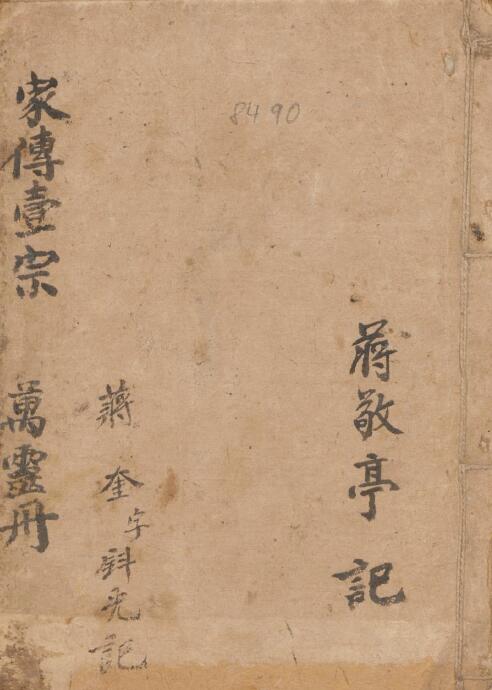 8490
蔣敬亭記
蔣奎字斜光記
家傳壹宗 萬靈冊